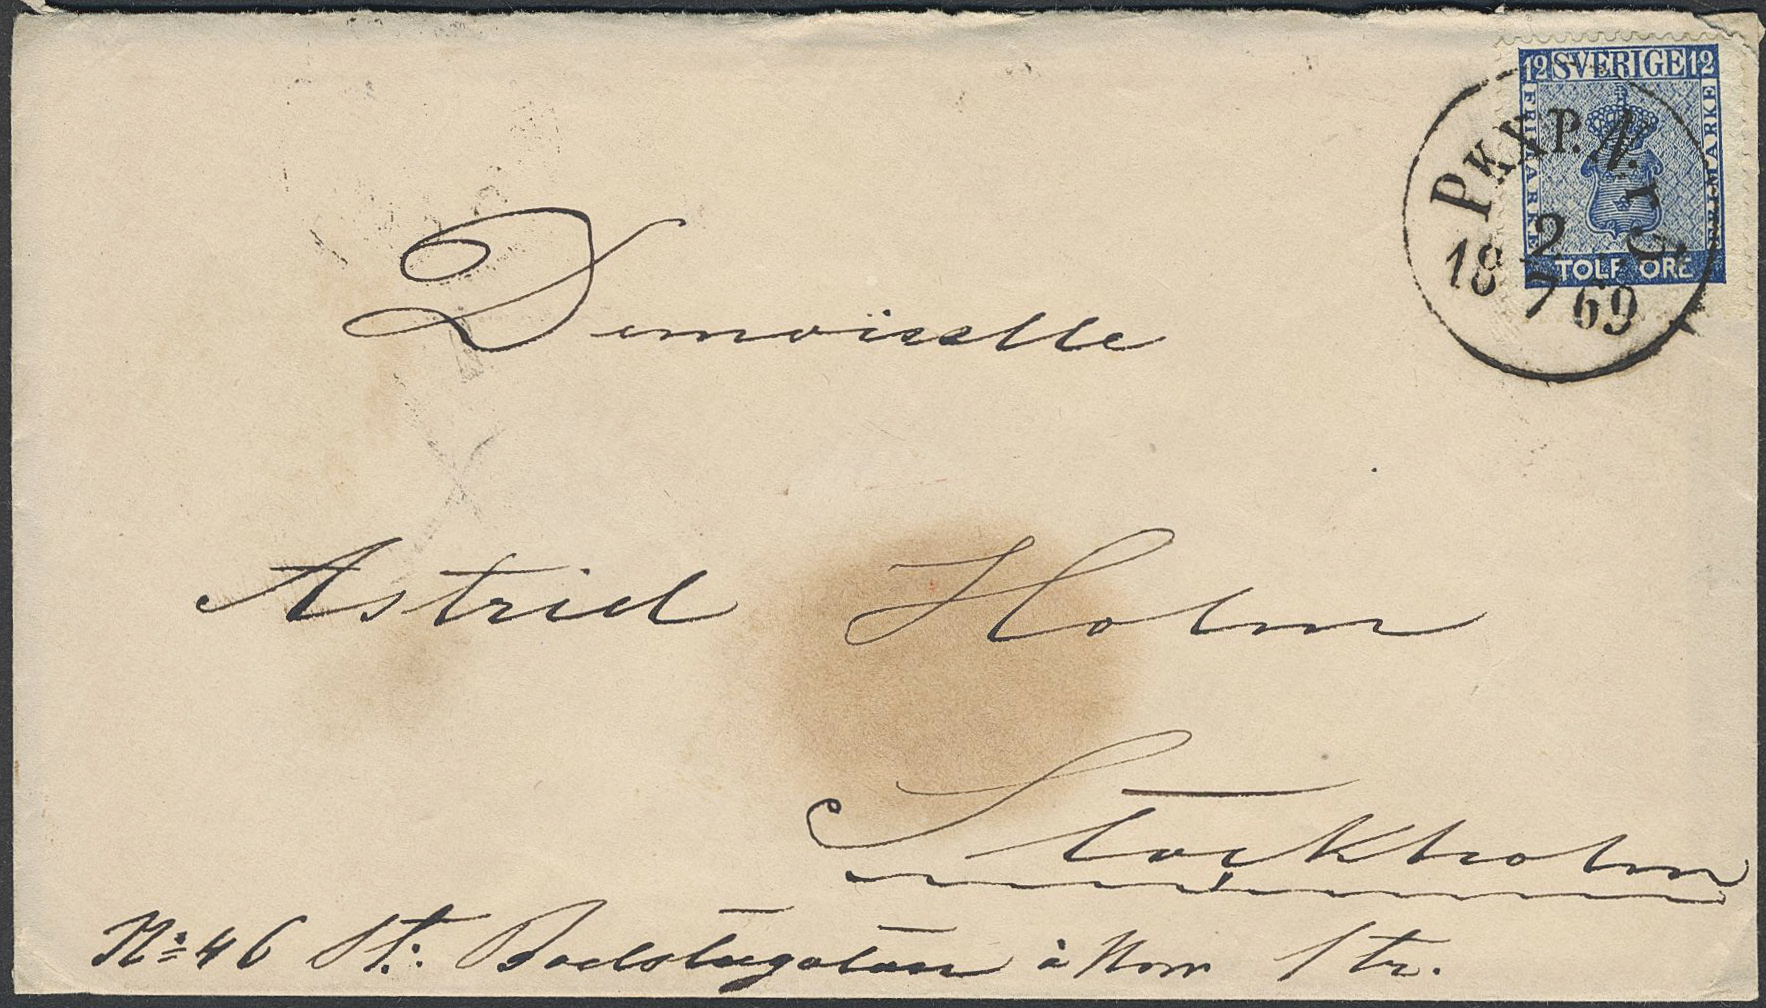 12 SVERIGE 12
FRIMÄRKE
FRIMÄRKE
TOLF ÖRE
PKXP. Nr 5
18 2/7 69
Demoiselle
Astrid Holm
Stockholm
No 46 St: Badstugatan å Norr Str.